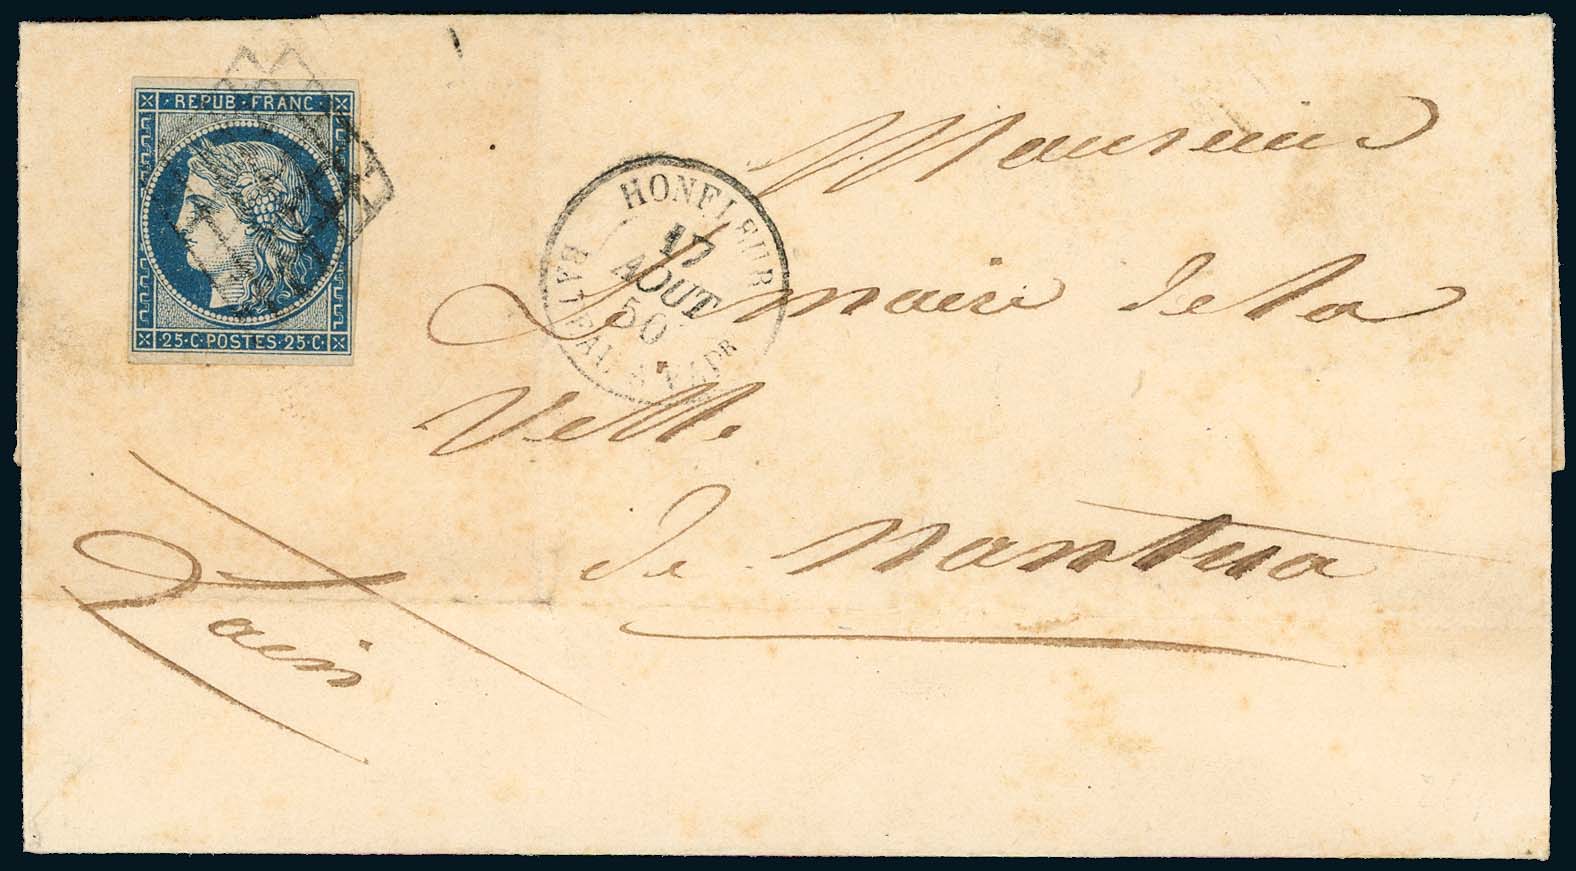 REPUB · FRANC ·
25 · C · POSTES · 25 · C ·
HONFLEUR
17
AOUT
50
BAT EAU A VAPR
Monsieur
Le maire de la
Ville
de Nantua
Lain